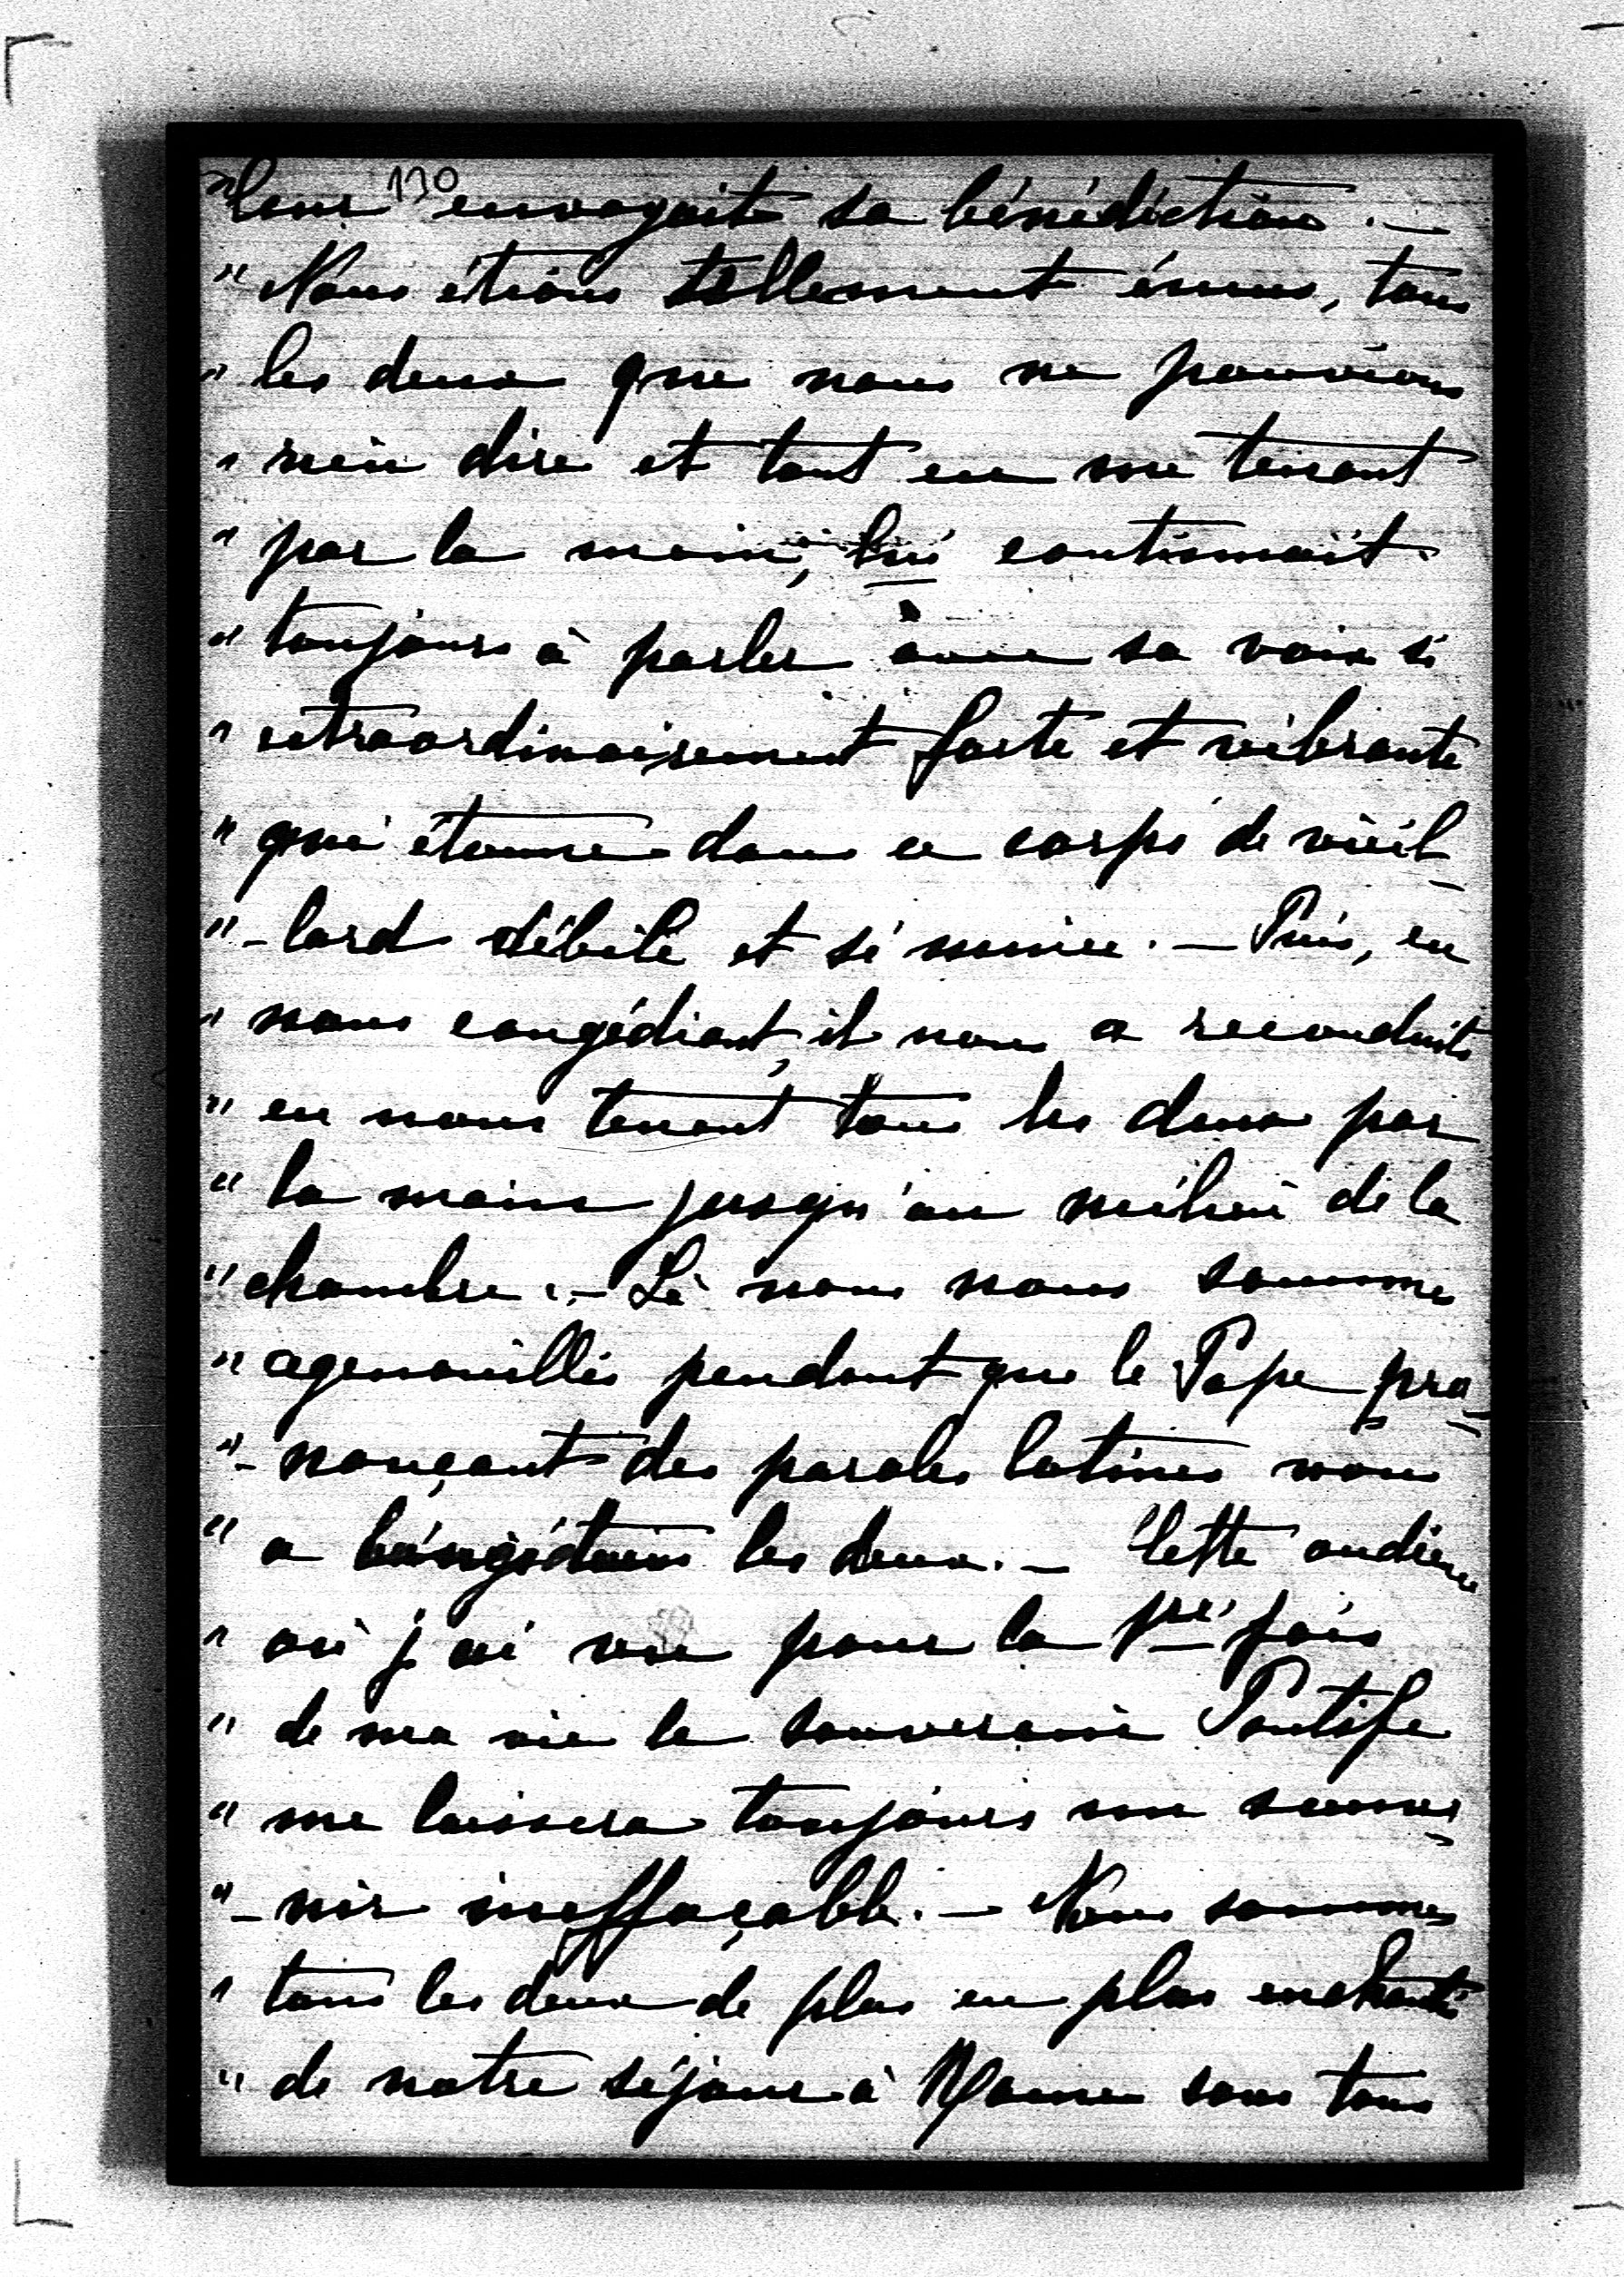 130
"leur envoyait sa bénédiction. —
" Nous étions tellement émus, tous
" les deux que nous ne pouvions
" rien dire et tout en me tenant
" par la main, lui continuait
" toujours à parler avec sa voix si
" extraordinairement forte et vibrante
" qui étonne dans ce corps de vieil-
" -lard débile et si mince. — Puis, en
" nous congédiant, il nous a reconduits
" en nous tenant tous les deux par
" la main jusqu'au milieu de la
" chambre. — Là nous nous sommes
" agenouillés pendant que le Pape pro-
" -nonçant des paroles latines nous
" a bénis tous les deux. — Cette audience
" où j'ai vu pour la 1re fois
" de ma vie le souverain Pontife
" me laissera toujours un souve-
" -nir ineffaçable. — Nous sommes
" tous les deux de plus en plus enchantés
" de notre séjour à Rome sous tous